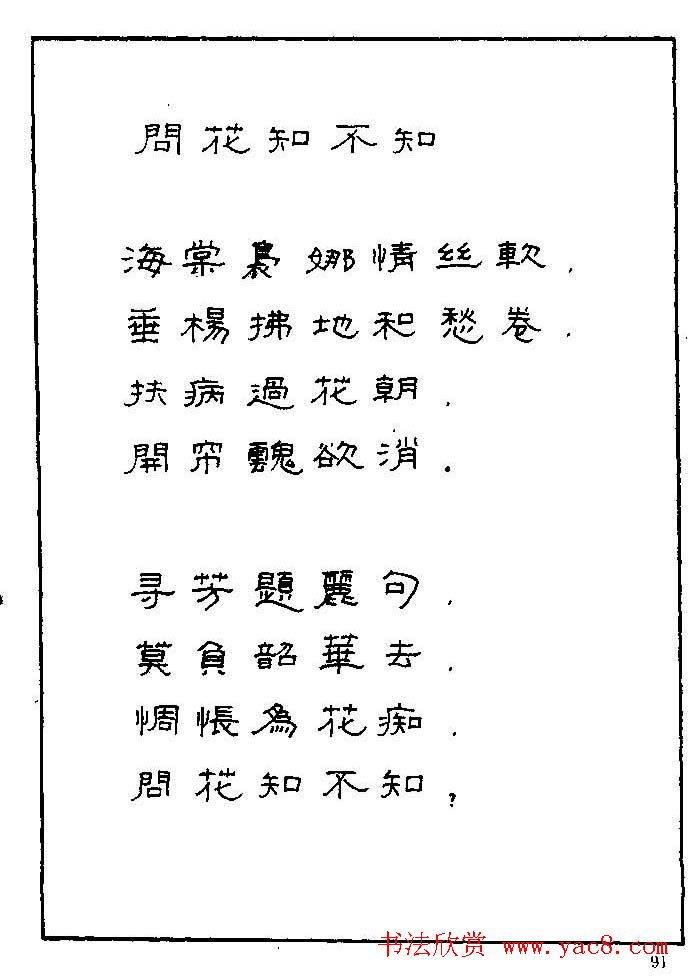 問花知不知
海棠裊娜情丝軟.
垂楊拂地和愁卷.
扶病過花朝.
開帘魂欲消.
寻芳題麗句.
莫負韶華去.
惆悵為花痴.
問花知不知?
书法欣赏 www.yac8.com
91